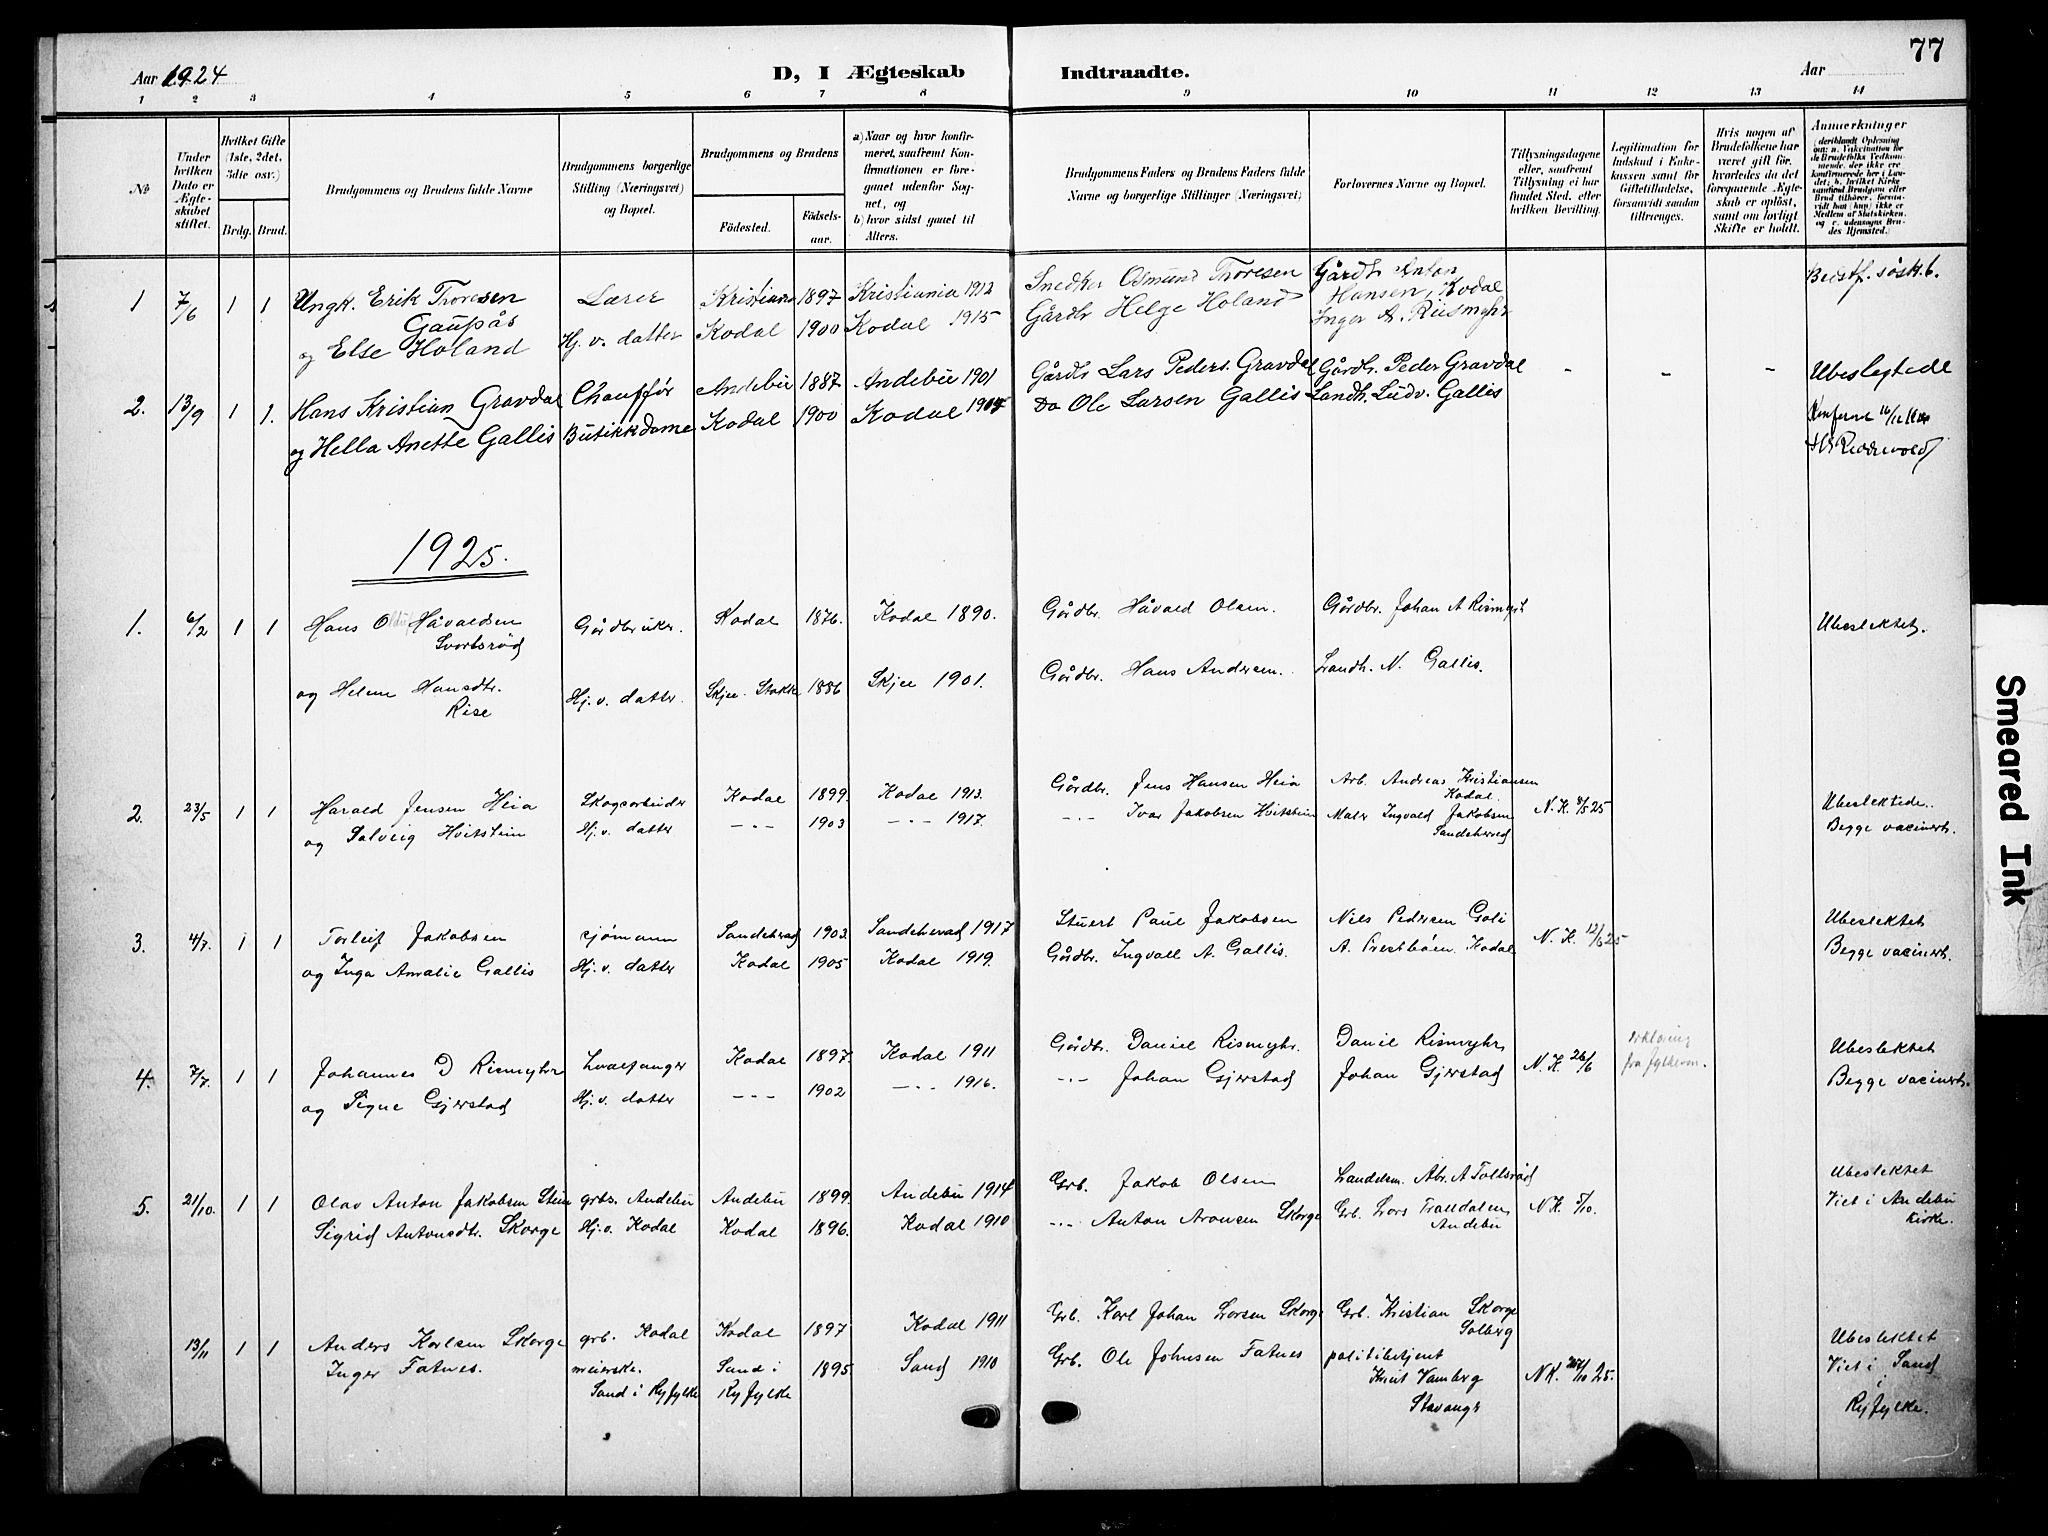 77
Aar 1924 D, I Ægteskab Indtraadte. Aar
1 2 3 4 5 6 7 8 9 10 11 12 13 14
No
Under hvilken Dato er Ægteskabet stiftet.
Hvilket Gifte (1ste, 2det, 3die osv.)
Brdg. Brud.
Brudgommens og Brudens fulde Navne
Brudgommens borgerlige Stilling (Næringsvei) og Bopæl.
Brudgommens og Brudens
Fødested. Fødselsaar.
a) Naar og hvor konfirmeret, saafremt Konfirmationen er foregaaet udenfor Sognet, og
b) hvor sidst gaaet til Alters.
Brudgommens Faders og Brudens Faders fulde Navne og borgerlige Stillinger (Næringsvei)
Forlovernes Navne og Bopæl.
Tillysningsdagene eller, saafremt Tillysning ei har fundet Sted, efter hvilken Bevilling.
Legitimation for Indskud i Enkekassen samt for Giftetilladelse, forsaavidt saadan tiltrænges.
Hvis nogen af Brudefolkene har været gift før, hvorledes da det foregaaende Ægteskab er opløst, samt om lovligt Skifte er holdt.
Anmerkninger (deriblandt Oplysning om: a. Vakcination for de Brudefolks Vedkommende, der ikke ere konfirmerede her i Landet; b. hvilket Kirkesamfund Brudgom eller Brud tilhører, forsaavidt han (hun) ikke er Medlem af Statskirken, og c. udensogns Brudes Hjemsted.)
1 7/6 1 1 Ungk. Erik Thoresen Gaupås Lærer Kristiania 1897 Kristiania 1912 Snedker Osmund Thoresen Gårdb. Anton Hansen, Kodal Bedstf. søsk. b.
og Else Holand Hj. v. datter Kodal 1900 Kodal 1915 Gårdbr Helge Holand Inger A. Riismyhr
2. 13/9 1 1. Hans Kristian Gravdal Chauffør Andebu 1887 Andebu 1901 Gårdb Lars Peders. Gravdal Gårdb. Peder Gravdal - - - Ubeslegtede
og Hella Anette Gallis Butikkdame Kodal 1900 Kodal 1914 Do Ole Larsen Gallis Landh. Ludv. Gallis
1925.
1. 6/2 1 1 Hans Håvaldsen Svortsrød Gårdbruker. Kodal 1876. Kodal 1890. Gårdbr. Håvald Olsen. Gårdbr. Johan A Rismyhr Ubeslektet.
og Helene Hansdtr. Rise Hj. v. datter. Skjee. Stokke 1886 Skjee 1901. Gårdbr. Hans Andersen. Landh. N. Gallis.
2. 23/5 1 1 Harald Jensen Heia Skogsarbeider Kodal 1899. Kodal 1913. Gårdbr. Jens Hansen Heia Arb. Andreas Kristiansen Kodal. N. K. 8/5 25 Ubeslektede.
og Solveig Hvitstein Hj. v. datter -"- 1903 -"- 1917. -"- Ivar Jakobsen Hvitstein Maler Ingvald Jakobsen Sandeherred Begge vacinert.
3. 4/7. 1 1 Torleif Jakobsen sjømann Sandeherad 1903. Sandeherad 1917 Stuert Paul Jakobsen Niels Pedersen Goli N. K. 12/6 25 Ubeslektet
og Inga Amalie Gallis Hj. v. datter Kodal 1905 Kodal 1919. Gårdbr. Ingvall A. Gallis. A. Prestbøen. Kodal Begge vacinert.
4. 7/7. 1 1 Johannes D Rismyhr hvalfanger Kodal 1897. Kodal 1911 Gårdbr. Daniel Rismyhr. Daniel Rismyhr N. K. 26/6 erklæring fra fylkesm. Ubeslektet
og Signe Gjerstad Hj. v. datter -"- 1902 -"- 1916. -"- Johan Gjerstad Johan Gjerstad Begge vacinert.
5. 21/10. 1 1 Olav Anton Jakobsen Stein grbr. Andebu Andebu 1899. Andebu 1914 Grb. Jakob Olsen Landelm. Abr. A Tolsrød N K. 5/10. Ubeslektet
Sigrid Antonsdtr. Skorge Hj. v. Kodal Kodal 1896. Kodal 1910 -"- Anton Aronsen Skorge Grb. Lars Trandalen Andebu Viet i Andebu Kirke.
13/11 1 1 Anders Karlsen Skorge grb. Kodal Kodal 1897 Kodal 1911 Grb. Karl Johan Larsen Skorge Grb. Kristian Skorge Solberg Ubeslektet
Inger Fatnes. meierske. Sand i Ryfylke Sand i Ryfylke 1895. Sand 1910 Grb. Ole Johnsen Fatnes politibetjent Knut Vamberg Stavanger NK. 10 25. Viet i Sand i Ryfylke.
Smeared Ink